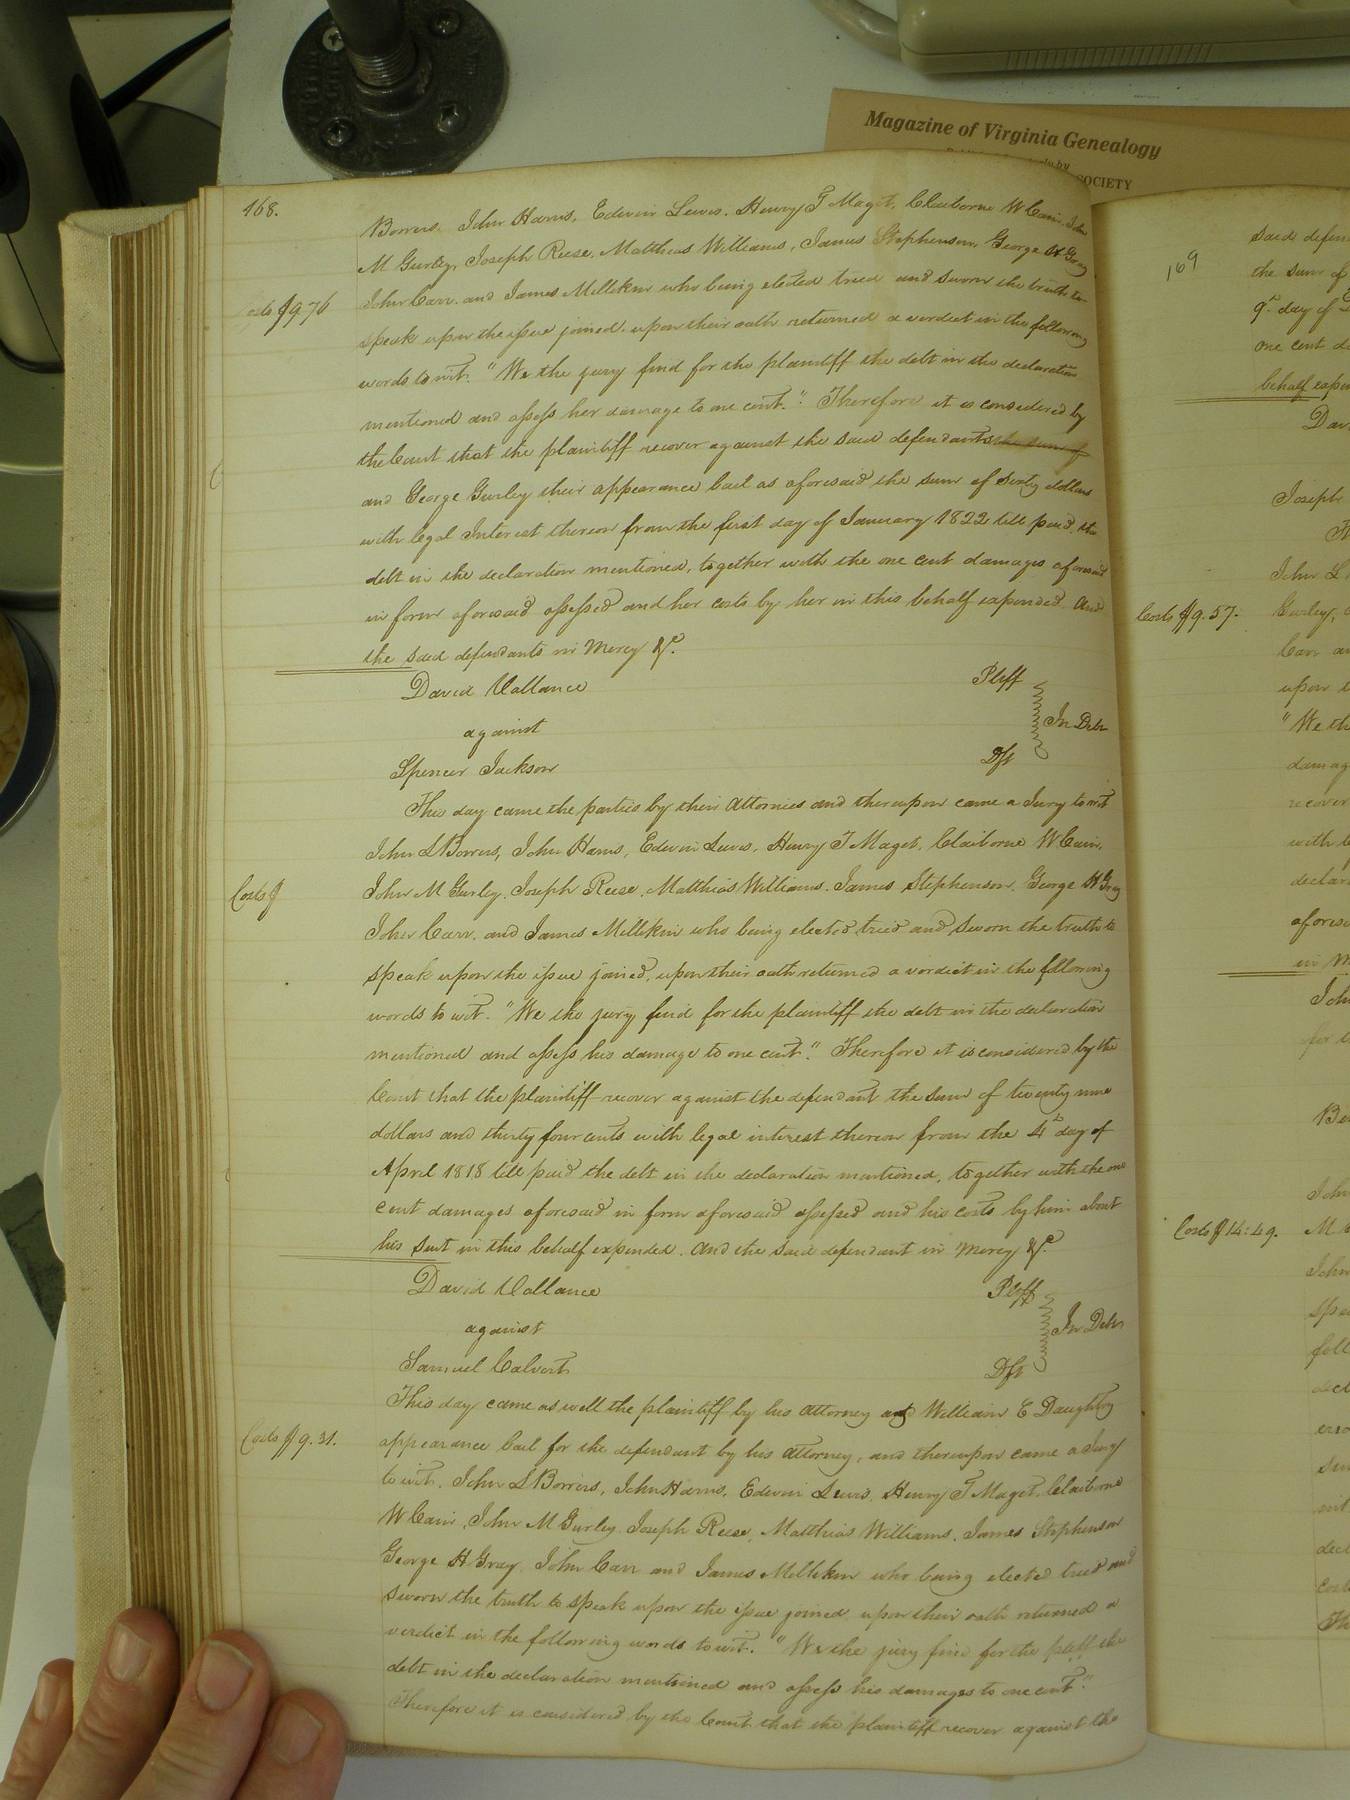 Magazine of Virginia Genealogy
SOCIETY
168.
Borrers, John Harris, Edwin Lewis, Henry T Maget, Claiborne W Cain, John
M Gurley, Joseph Reese, Matthias Williams, James Stephenson, George H Gray
Costs $9.76
John Carr, and James Millikin who being elected tried and sworn the truth to
speak upon the issue joined, upon their oath returned a verdict in the following
words to wit. "We the jury find for the plaintiff the debt in the declaration
mentioned and assess her damage to one cent." Therefore it is considered by
the Court that the plaintiff recover against the said defendants the sum of
and George Gurley their appearance bail as aforesaid the sum of Sixty dollars
with legal Interest thereon from the first day of January 1822 till paid, the
debt in the declaration mentioned, together with the one cent damages aforesaid
in form aforesaid assessed and her costs by her in this behalf expended. And
the said defendants in Mercy &c.
David Vallance Pltff
against In Debt
Spencer Jackson Dft
This day came the parties by their Attornies and thereupon came a Jury to wit
John L Borrers, John Harris, Edwin Lewis, Henry T Maget, Claiborne W Cain,
Costs $
John M Gurley, Joseph Reese, Matthias Williams, James Stephenson, George H Gray
John Carr, and James Millikin who being elected, tried and sworn the truth to
speak upon the issue joined, upon their oath returned a verdict in the following
words to wit. "We the jury find for the plaintiff the debt in the declaration
mentioned and assess his damage to one cent." Therefore it is considered by the
Court that the plaintiff recover against the defendant the sum of twenty nine
dollars and thirty four cents with legal interest thereon from the 4th day of
April 1818 till paid the debt in the declaration mentioned, together with the one
cent damages aforesaid in form aforesaid assessed and his costs by him about
his suit in this behalf expended. And the said defendant in Mercy &c.
David Vallance Pltff
against In Debt
Samuel Calvert Dft
This day came as well the plaintiff by his Attorney and William E Daughtry
Costs $9.31.
appearance bail for the defendant by his Attorney, and thereupon came a Jury
to wit. John L Borrers, John Harris, Edwin Lewis, Henry T Maget, Claiborne
W Cain, John M Gurley, Joseph Reese, Matthias Williams, James Stephenson
George H Gray, John Carr and James Millikin who being elected tried and
sworn the truth to speak upon the issue joined, upon their oath returned a
verdict in the following words to wit. "We the jury find for the pltff the
debt in the declaration mentioned and assess his damages to one cent."
Therefore it is considered by the Court that the plaintiff recover against the
169
said defen
the sum of
9th day of
one cent d
behalf expen
Dav
Joseph
John L
Costs $9.57.
Gurley,
Carr an
upon
"We th
damag
recover
with l
declar
aforesa
in M
John
for
Be
John
Costs $14:49.
M
John
spe
foll
decl